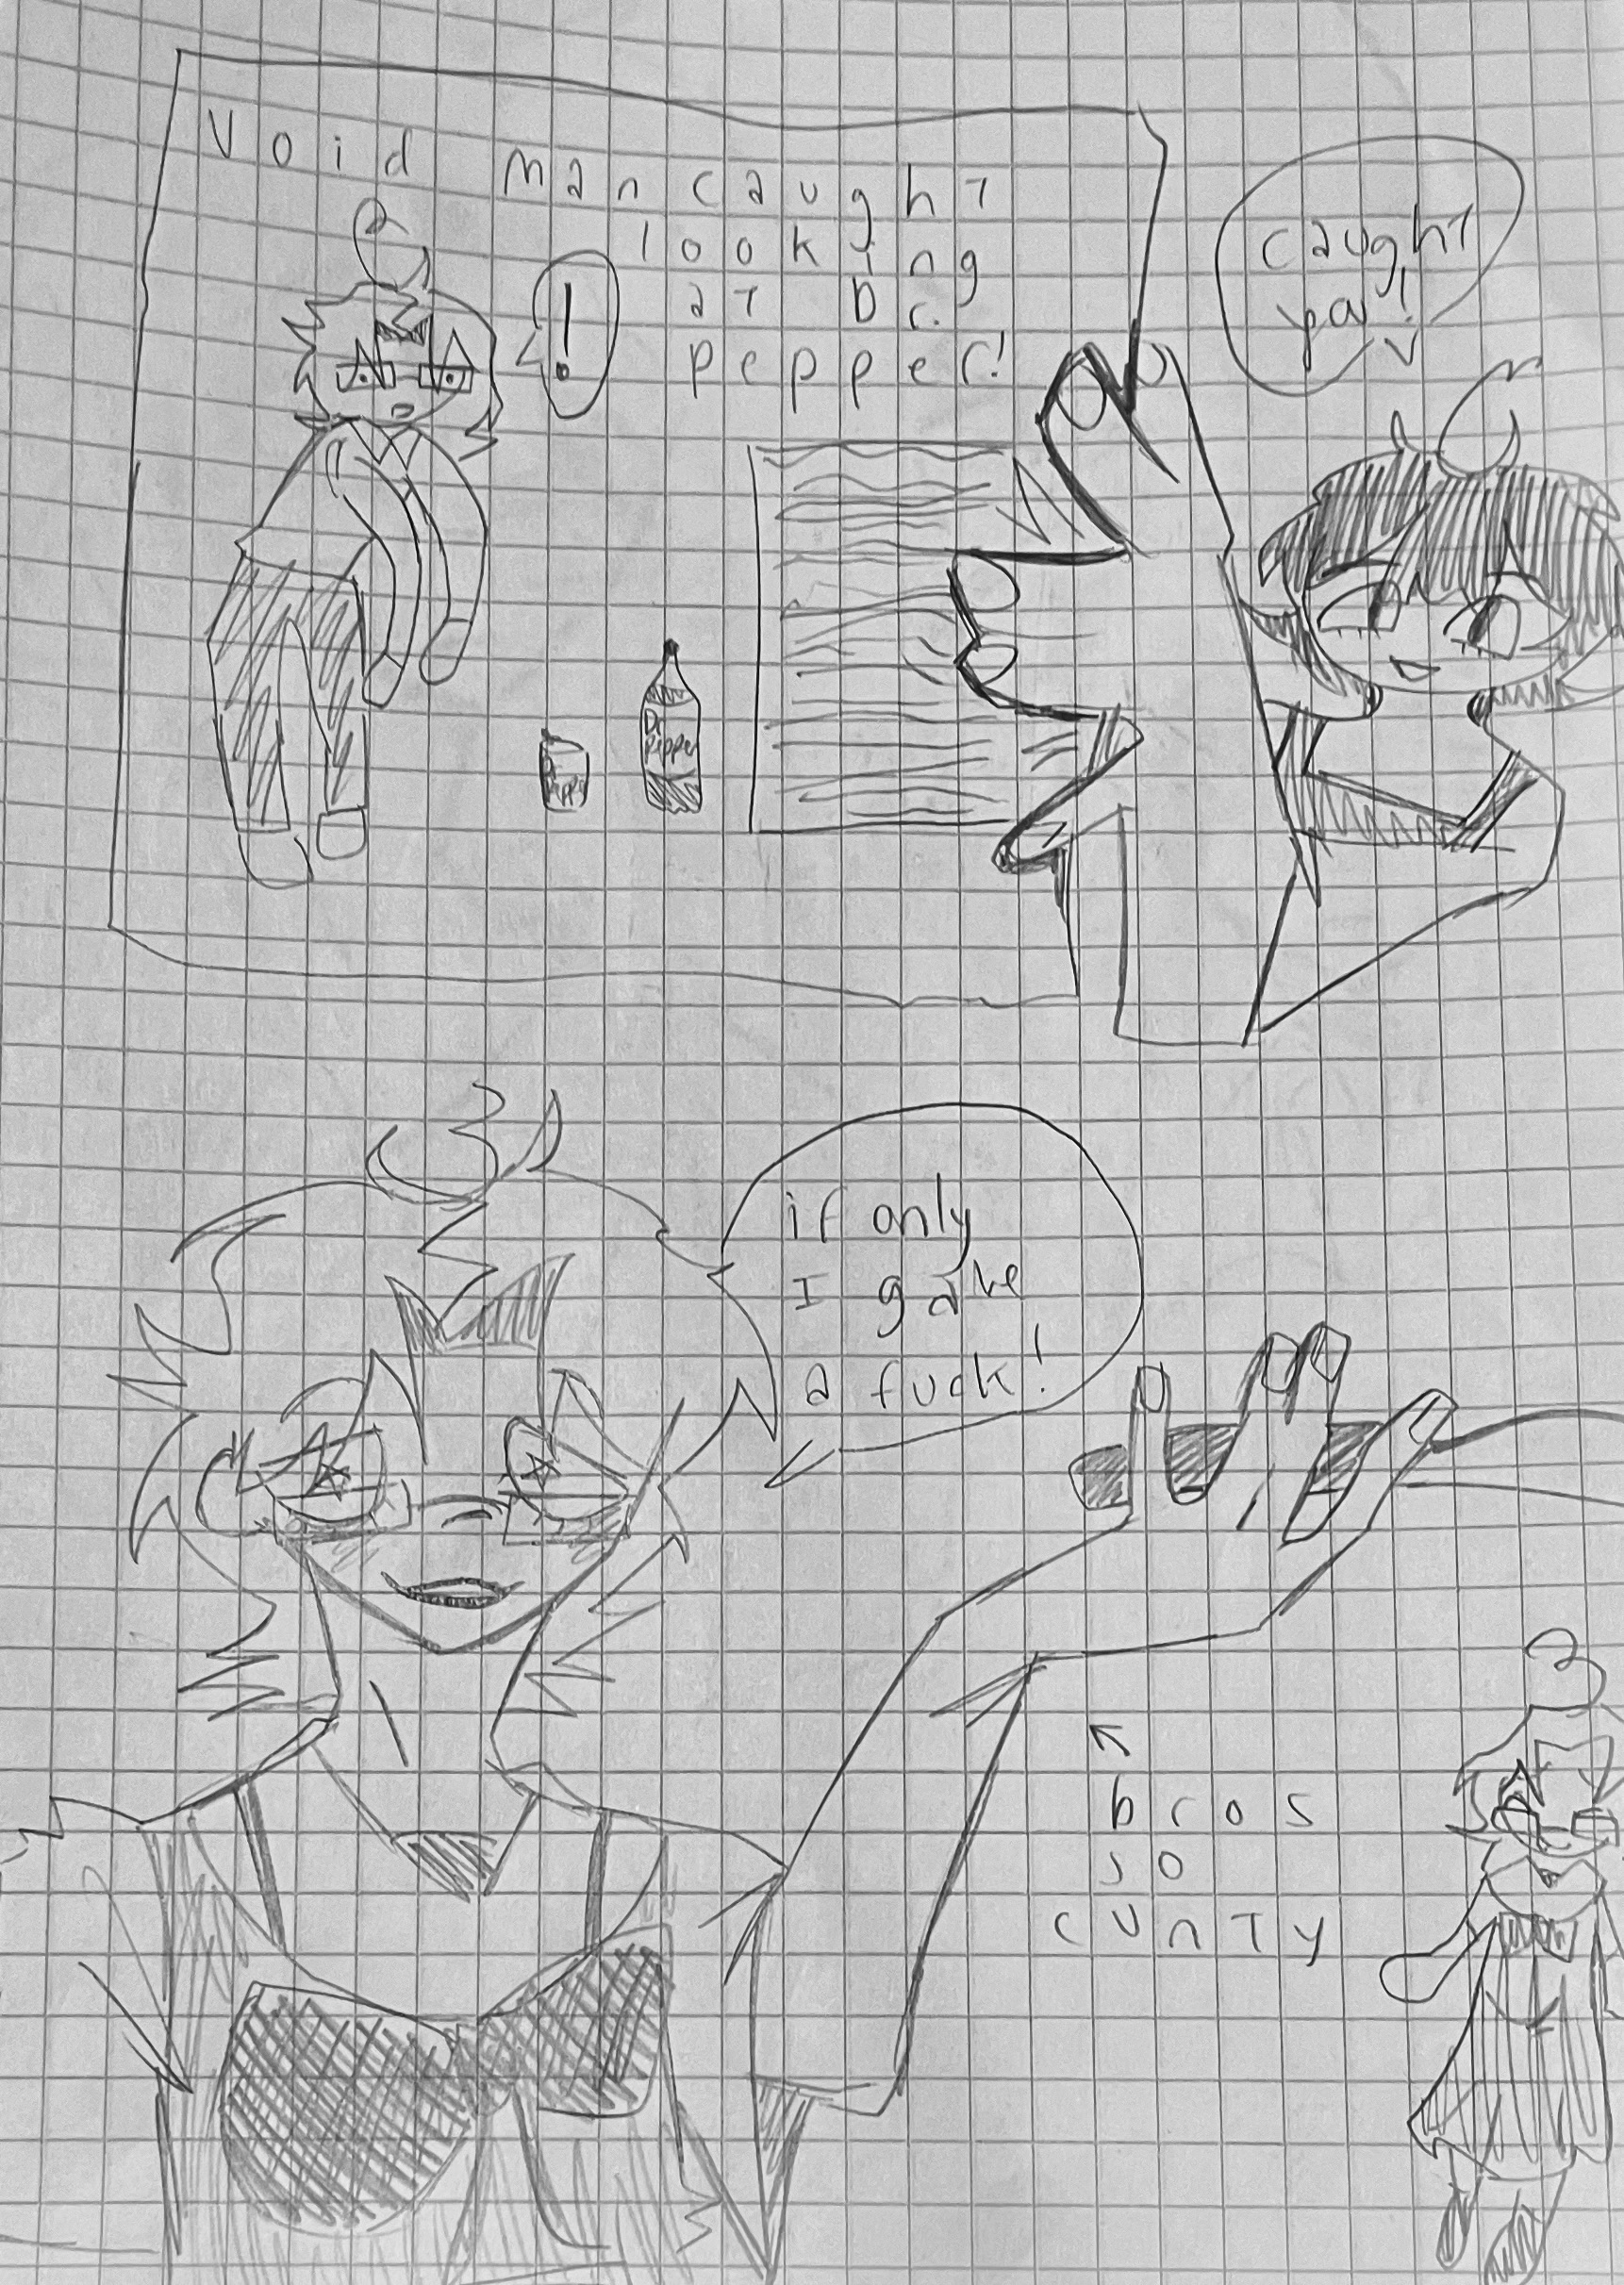 Void Man caught
looking
at Dr.
pepper!
!
caught
ya!
Dr
Pepper
Dr
Pepper
if only
I gave
a fuck!
bros
so
cunty